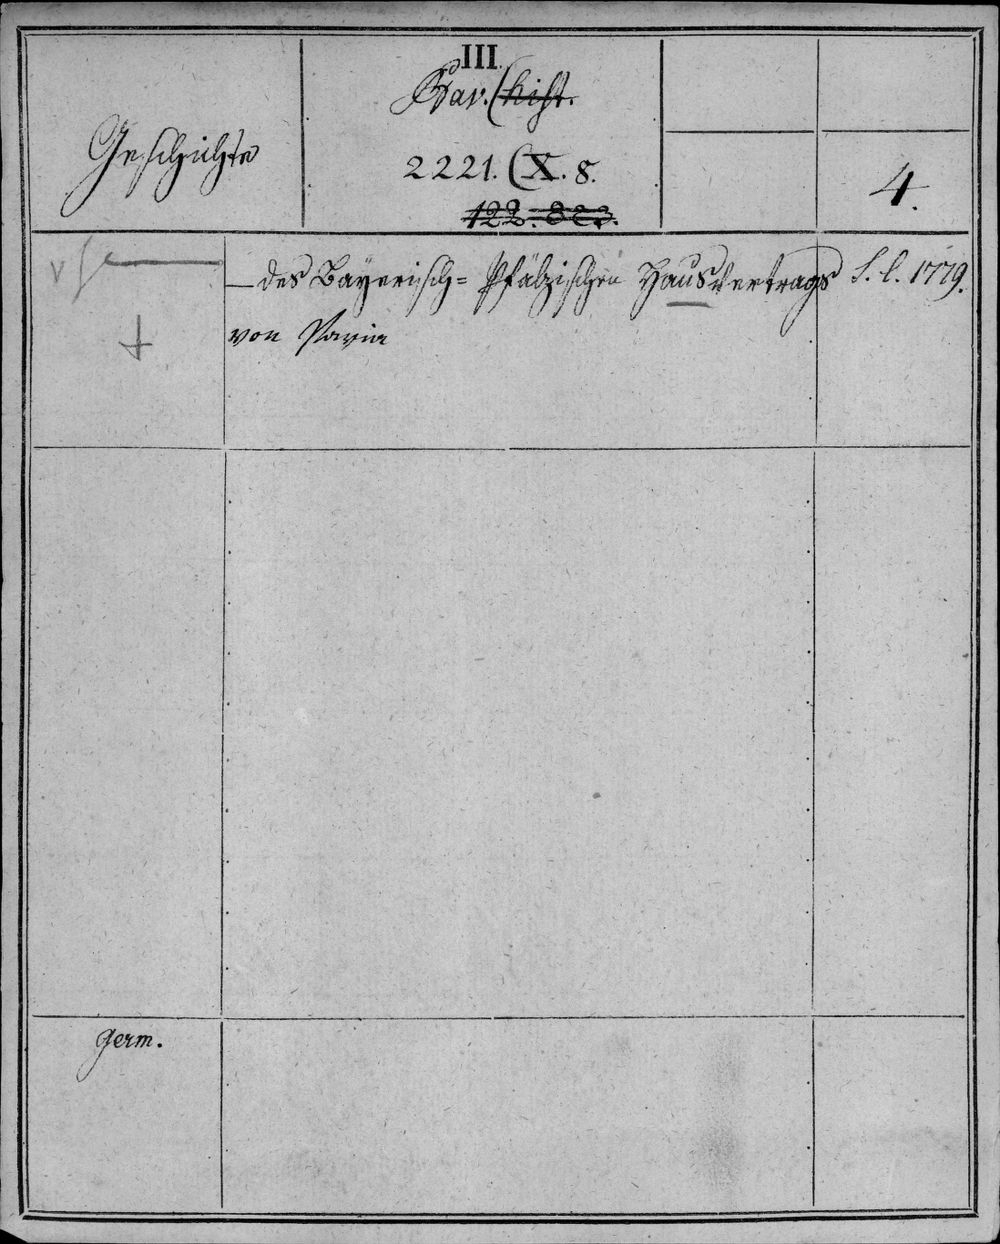 III.
Bav. (hist.
Geschichte
2221. (X. 8.
4.
— des Bayerisch= Pfälzischen Hausvertrags S. l. 1779.
von Pavia
germ.